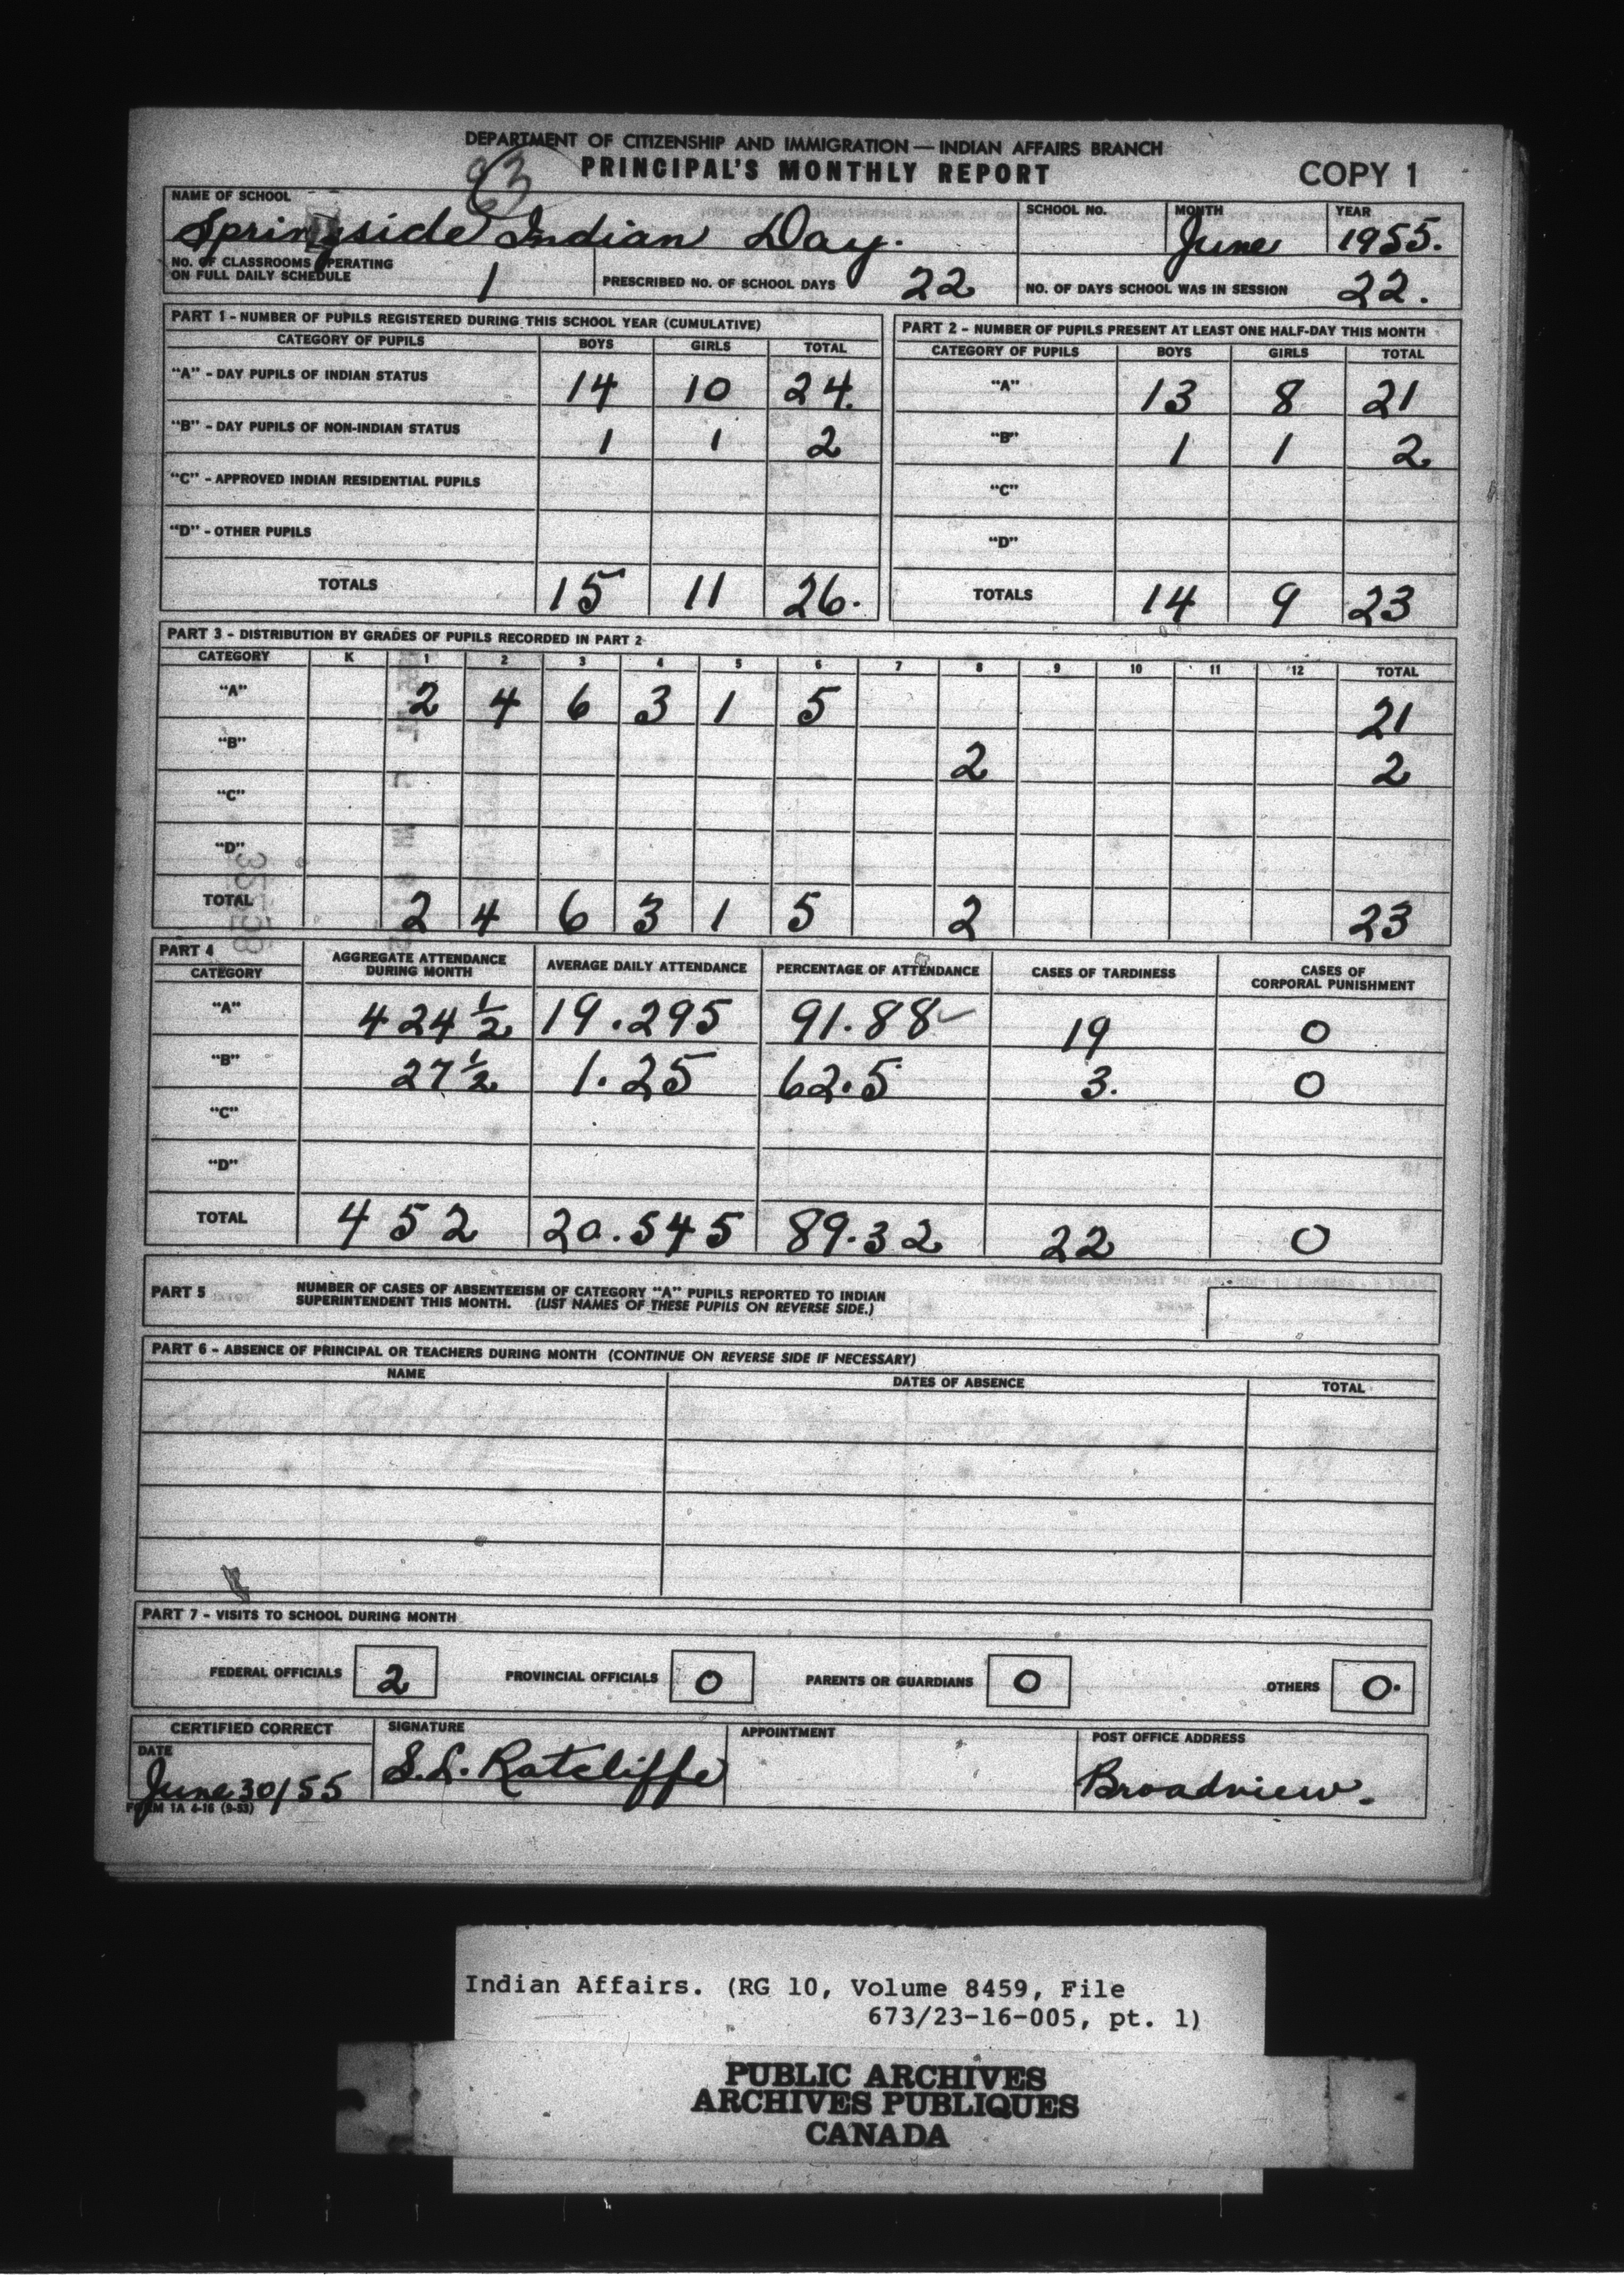 DEPARTMENT OF CITIZENSHIP AND IMMIGRATION — INDIAN AFFAIRS BRANCH
PRINCIPAL'S MONTHLY REPORT
COPY 1
NAME OF SCHOOL SCHOOL NO. MONTH YEAR
Springside Indian Day. June 1955.
NO. OF CLASSROOMS OPERATING
ON FULL DAILY SCHEDULE 1 PRESCRIBED NO. OF SCHOOL DAYS 22 NO. OF DAYS SCHOOL WAS IN SESSION 22.
PART 1 - NUMBER OF PUPILS REGISTERED DURING THIS SCHOOL YEAR (CUMULATIVE)
CATEGORY OF PUPILS BOYS GIRLS TOTAL
"A" - DAY PUPILS OF INDIAN STATUS 14 10 24.
"B" - DAY PUPILS OF NON-INDIAN STATUS 1 1 2
"C" - APPROVED INDIAN RESIDENTIAL PUPILS
"D" - OTHER PUPILS
TOTALS 15 11 26.
PART 2 - NUMBER OF PUPILS PRESENT AT LEAST ONE HALF-DAY THIS MONTH
CATEGORY OF PUPILS BOYS GIRLS TOTAL
"A" 13 8 21
"B" 1 1 2
"C"
"D"
TOTALS 14 9 23
PART 3 - DISTRIBUTION BY GRADES OF PUPILS RECORDED IN PART 2
CATEGORY K 1 2 3 4 5 6 7 8 9 10 11 12 TOTAL
"A" 2 4 6 3 1 5 21
"B" 2 2
"C"
"D"
TOTAL 2 4 6 3 1 5 2 23
PART 4
CATEGORY AGGREGATE ATTENDANCE DURING MONTH AVERAGE DAILY ATTENDANCE PERCENTAGE OF ATTENDANCE CASES OF TARDINESS CASES OF CORPORAL PUNISHMENT
"A" 424 ½ 19.295 91.88 19 0
"B" 27 ½ 1.25 62.5 3. 0
"C"
"D"
TOTAL 452 20.545 89.32 22 0
PART 5 NUMBER OF CASES OF ABSENTEEISM OF CATEGORY "A" PUPILS REPORTED TO INDIAN
SUPERINTENDENT THIS MONTH. (LIST NAMES OF THESE PUPILS ON REVERSE SIDE.)
PART 6 - ABSENCE OF PRINCIPAL OR TEACHERS DURING MONTH (CONTINUE ON REVERSE SIDE IF NECESSARY)
NAME DATES OF ABSENCE TOTAL
PART 7 - VISITS TO SCHOOL DURING MONTH
FEDERAL OFFICIALS 2 PROVINCIAL OFFICIALS 0 PARENTS OR GUARDIANS 0 OTHERS 0.
CERTIFIED CORRECT SIGNATURE APPOINTMENT POST OFFICE ADDRESS
DATE
June 30/55 S.L. Ratcliffe Broadview.
FORM 1A 4-16 (9-53)
Indian Affairs. (RG 10, Volume 8459, File
673/23-16-005, pt. 1)
PUBLIC ARCHIVES
ARCHIVES PUBLIQUES
CANADA